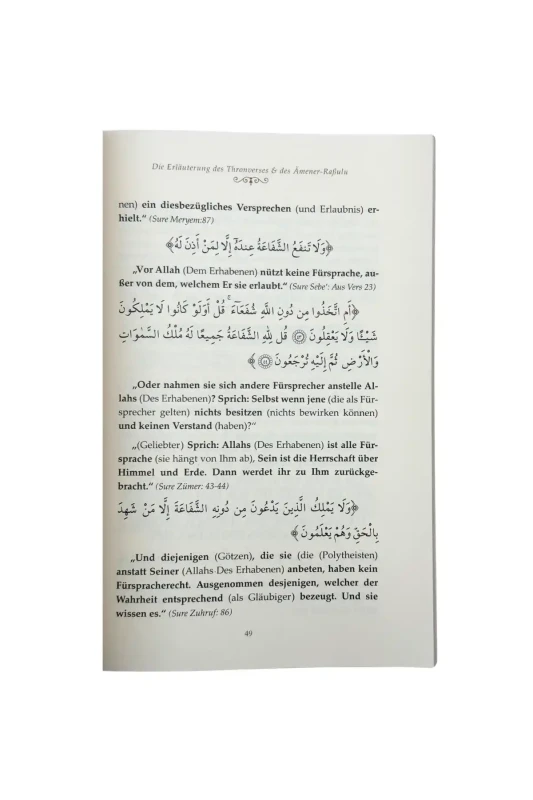 Die Erläuterung des Thronverses & des Âmener-Raßulu
nen) ein diesbezügliches Versprechen (und Erlaubnis) er-
hielt.“ (Sure Meryem:87)
﴿وَلَا تَنْفَعُ الشَّفَاعَةُ عِنْدَهُٓ اِلَّا لِمَنْ اَذِنَ لَهُ﴾
„Vor Allah (Dem Erhabenen) nützt keine Fürsprache, au-
ßer von dem, welchem Er sie erlaubt.“ (Sure Sebe‘: Aus Vers 23)
﴿اَمِ اتَّخَذُوا مِنْ دُونِ اللّٰهِ شُفَعَٓاءَۜ قُلْ اَوَلَوْ كَانُوا لَا يَمْلِكُونَ
شَيْـًٔا وَلَا يَعْقِلُونَ ﴿٤٣﴾ قُلْ لِلّٰهِ الشَّفَاعَةُ جَم۪يعًا لَهُ مُلْكُ السَّمٰوَاتِ
وَالْاَرْضِ ثُمَّ اِلَيْهِ تُرْجَعُونَ ﴿٤٤﴾﴾
„Oder nahmen sie sich andere Fürsprecher anstelle Al-
lahs (Des Erhabenen)? Sprich: Selbst wenn jene (die als Für-
sprecher gelten) nichts besitzen (nichts bewirken können)
und keinen Verstand (haben)?“
„(Geliebter) Sprich: Allahs (Des Erhabenen) ist alle Für-
sprache (sie hängt von Ihm ab), Sein ist die Herrschaft über
Himmel und Erde. Dann werdet ihr zu Ihm zurückge-
bracht.“ (Sure Zümer: 43-44)
﴿وَلَا يَمْلِكُ الَّذ۪ينَ يَدْعُونَ مِنْ دُونِهِ الشَّفَاعَةَ اِلَّا مَنْ شَهِدَ
بِالْحَقِّ وَهُمْ يَعْلَمُونَ﴾
„Und diejenigen (Götzen), die sie (die (Polytheisten)
anstatt Seiner (Allahs Des Erhabenen) anbeten, haben kein
Fürspracherecht. Ausgenommen desjenigen, welcher der
Wahrheit entsprechend (als Gläubiger) bezeugt. Und sie
wissen es.“ (Sure Zuhruf: 86)
49